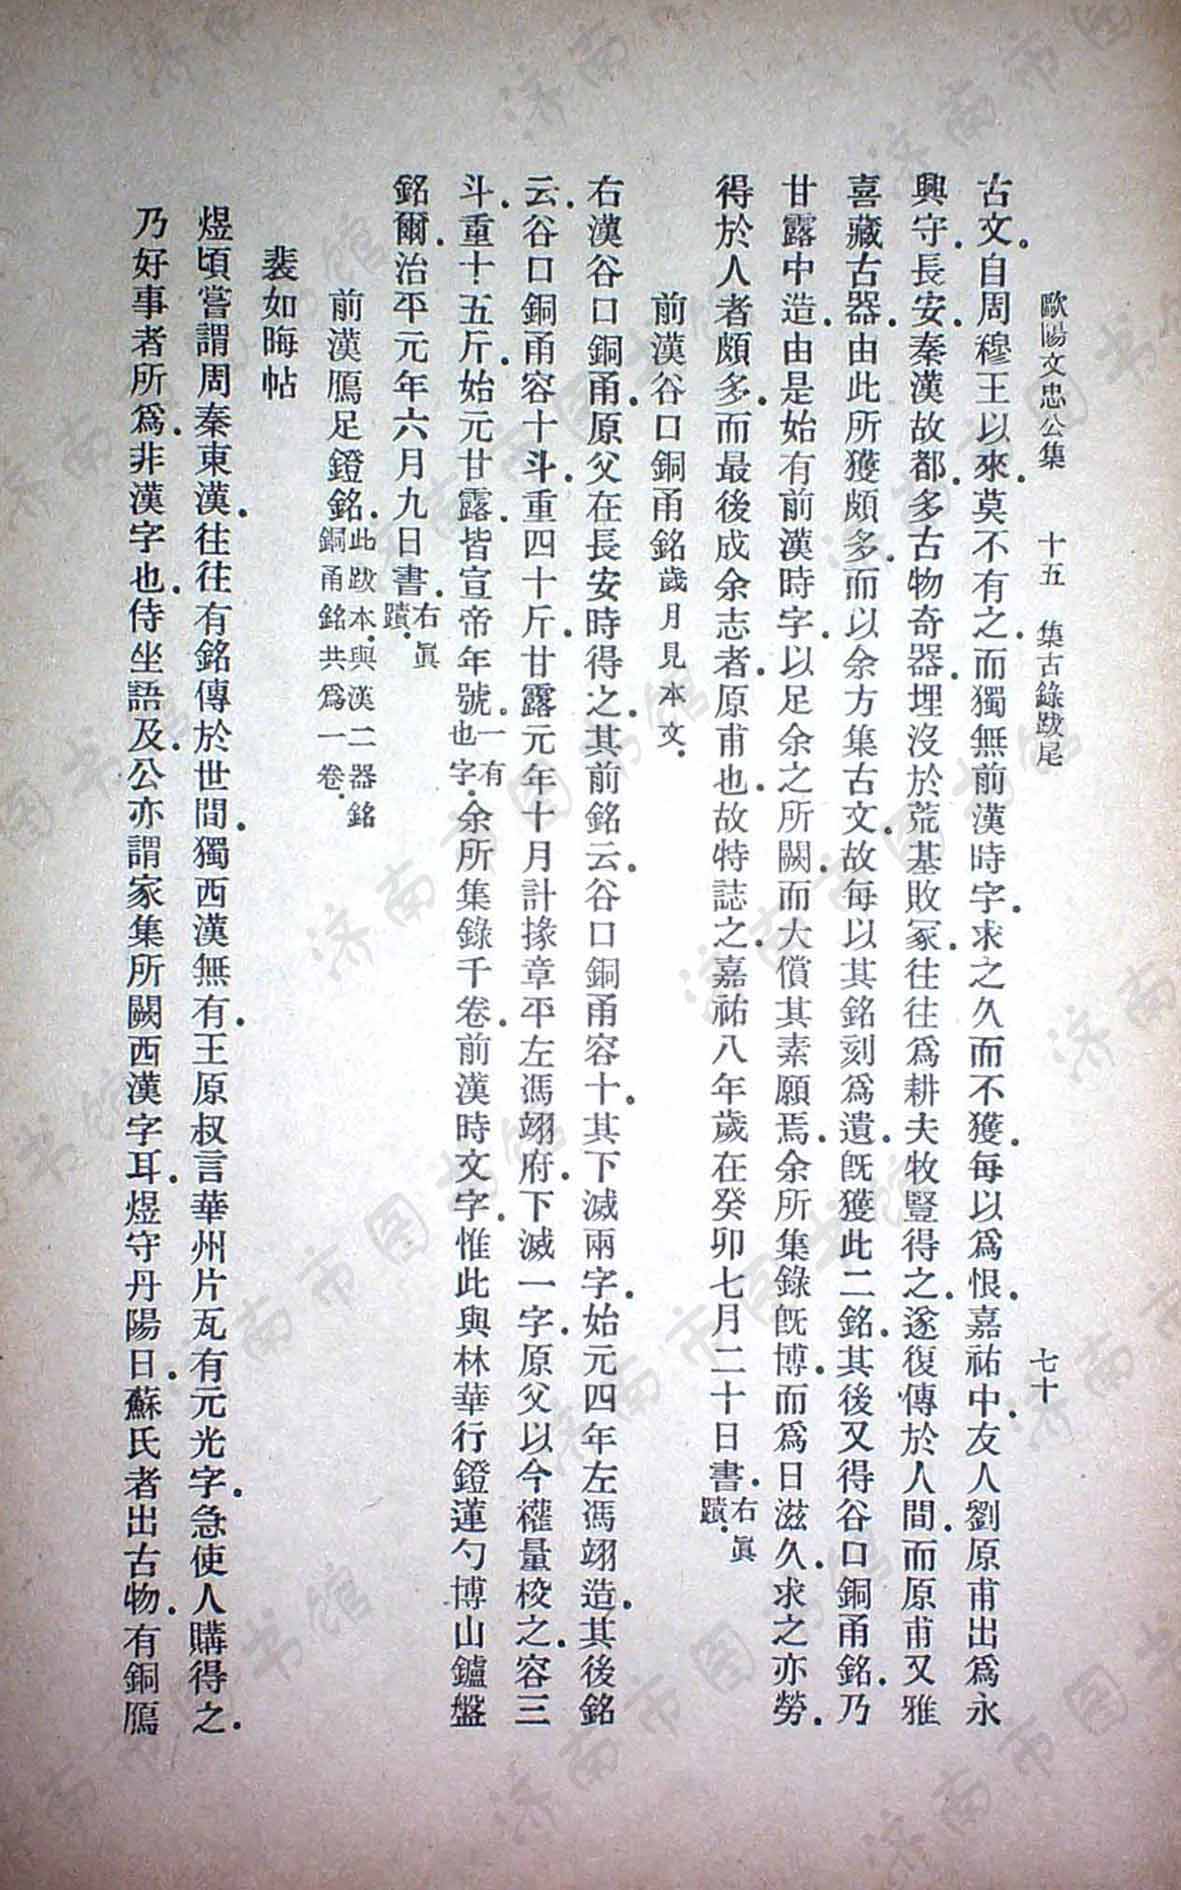 歐陽文忠公集　十五　集古錄跋尾　七十
古文。自周穆王以來。莫不有之。而獨無前漢時字。求之久而不獲。每以爲恨。嘉祐中。友人劉原甫出爲永
興守。長安。秦漢故都。多古物奇器。埋沒於荒基敗冢。往往爲耕夫牧豎得之。遂復傳於人間。而原甫又雅
喜藏古器。由此所獲頗多。而以余方集古文。故每以其銘刻爲遺。旣獲此二銘。其後又得谷口銅甬銘。乃
甘露中造。由是始有前漢時字。以足余之所闕。而大償其素願焉。余所集錄旣博。而爲日滋久。求之亦勞。
得於人者頗多。而最後成余志者。原甫也。故特誌之。嘉祐八年歲在癸卯七月二十日書。右眞蹟。
前漢谷口銅甬銘歲月見本文。
右漢谷口銅甬。原父在長安時得之。其前銘云。谷口銅甬容十。其下滅兩字。始元四年左馮翊造。其後銘
云。谷口銅甬容十斗。重四十斤。甘露元年十月計掾章平左馮翊府。下滅一字。原父以今權量校之。容三
斗。重十五斤。始元甘露。皆宣帝年號。一有也字。余所集錄千卷。前漢時文字。惟此與林華行鐙蓮勺博山鑪盤
銘爾。治平元年六月九日書。右眞蹟。
前漢鴈足鐙銘。此跋本。與漢二器銘銅甬銘共爲一卷。
裴如晦帖
煜頃嘗謂周秦東漢。往往有銘傳於世間。獨西漢無有。王原叔言華州片瓦有元光字。急使人購得之。
乃好事者所爲。非漢字也。侍坐語及。公亦謂家集所闕西漢字耳。煜守丹陽日。蘇氏者出古物。有銅鴈